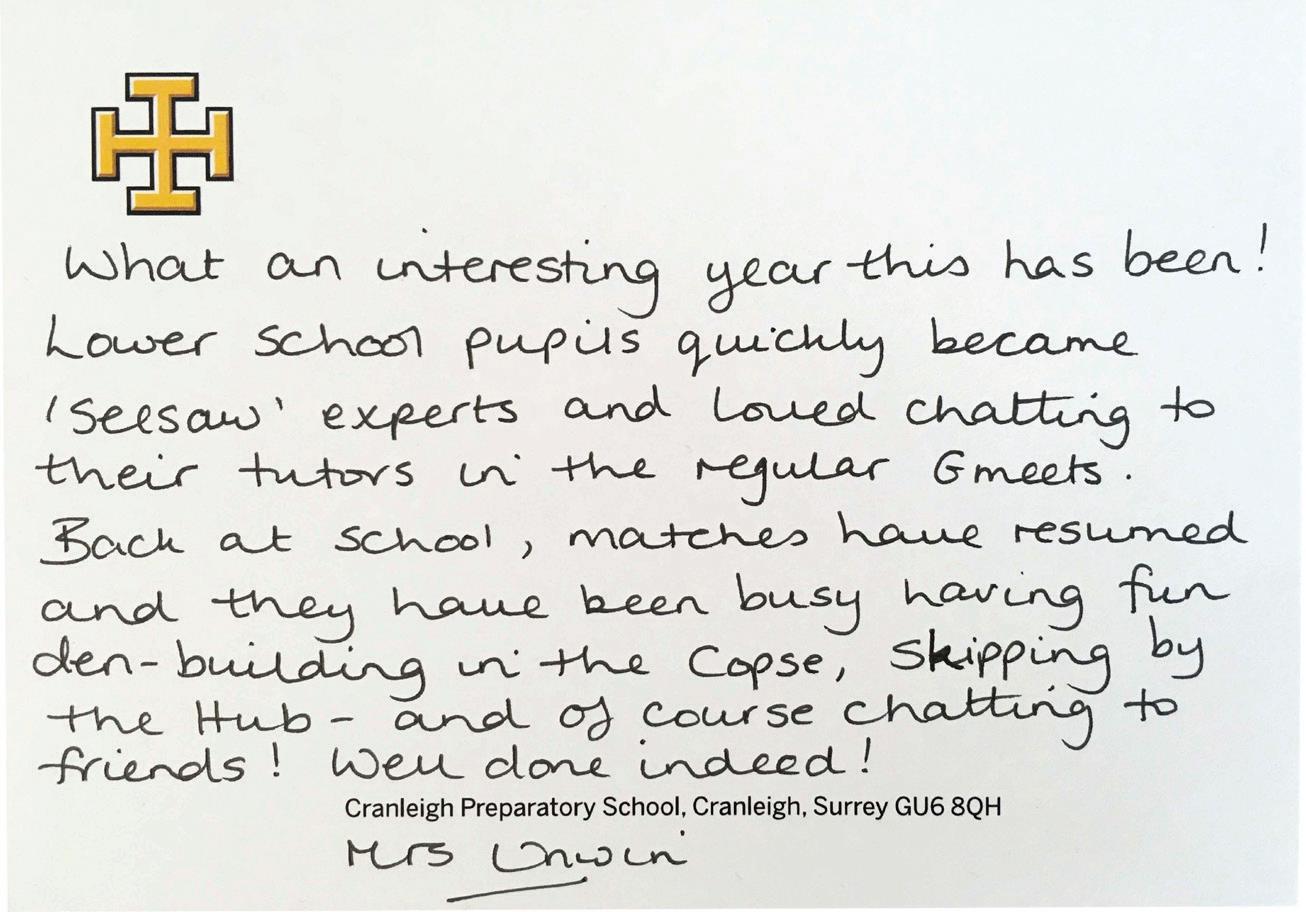 What an interesting year this has been!
Lower school pupils quickly became
'Seesaw' experts and loved chatting to
their tutors in the regular Gmeets.
Back at school, matches have resumed
and they have been busy having fun
den-building in the Copse, skipping by
the Hub - and of course chatting to
friends! Well done indeed!
Cranleigh Preparatory School, Cranleigh, Surrey GU6 8QH
Mrs Unwin